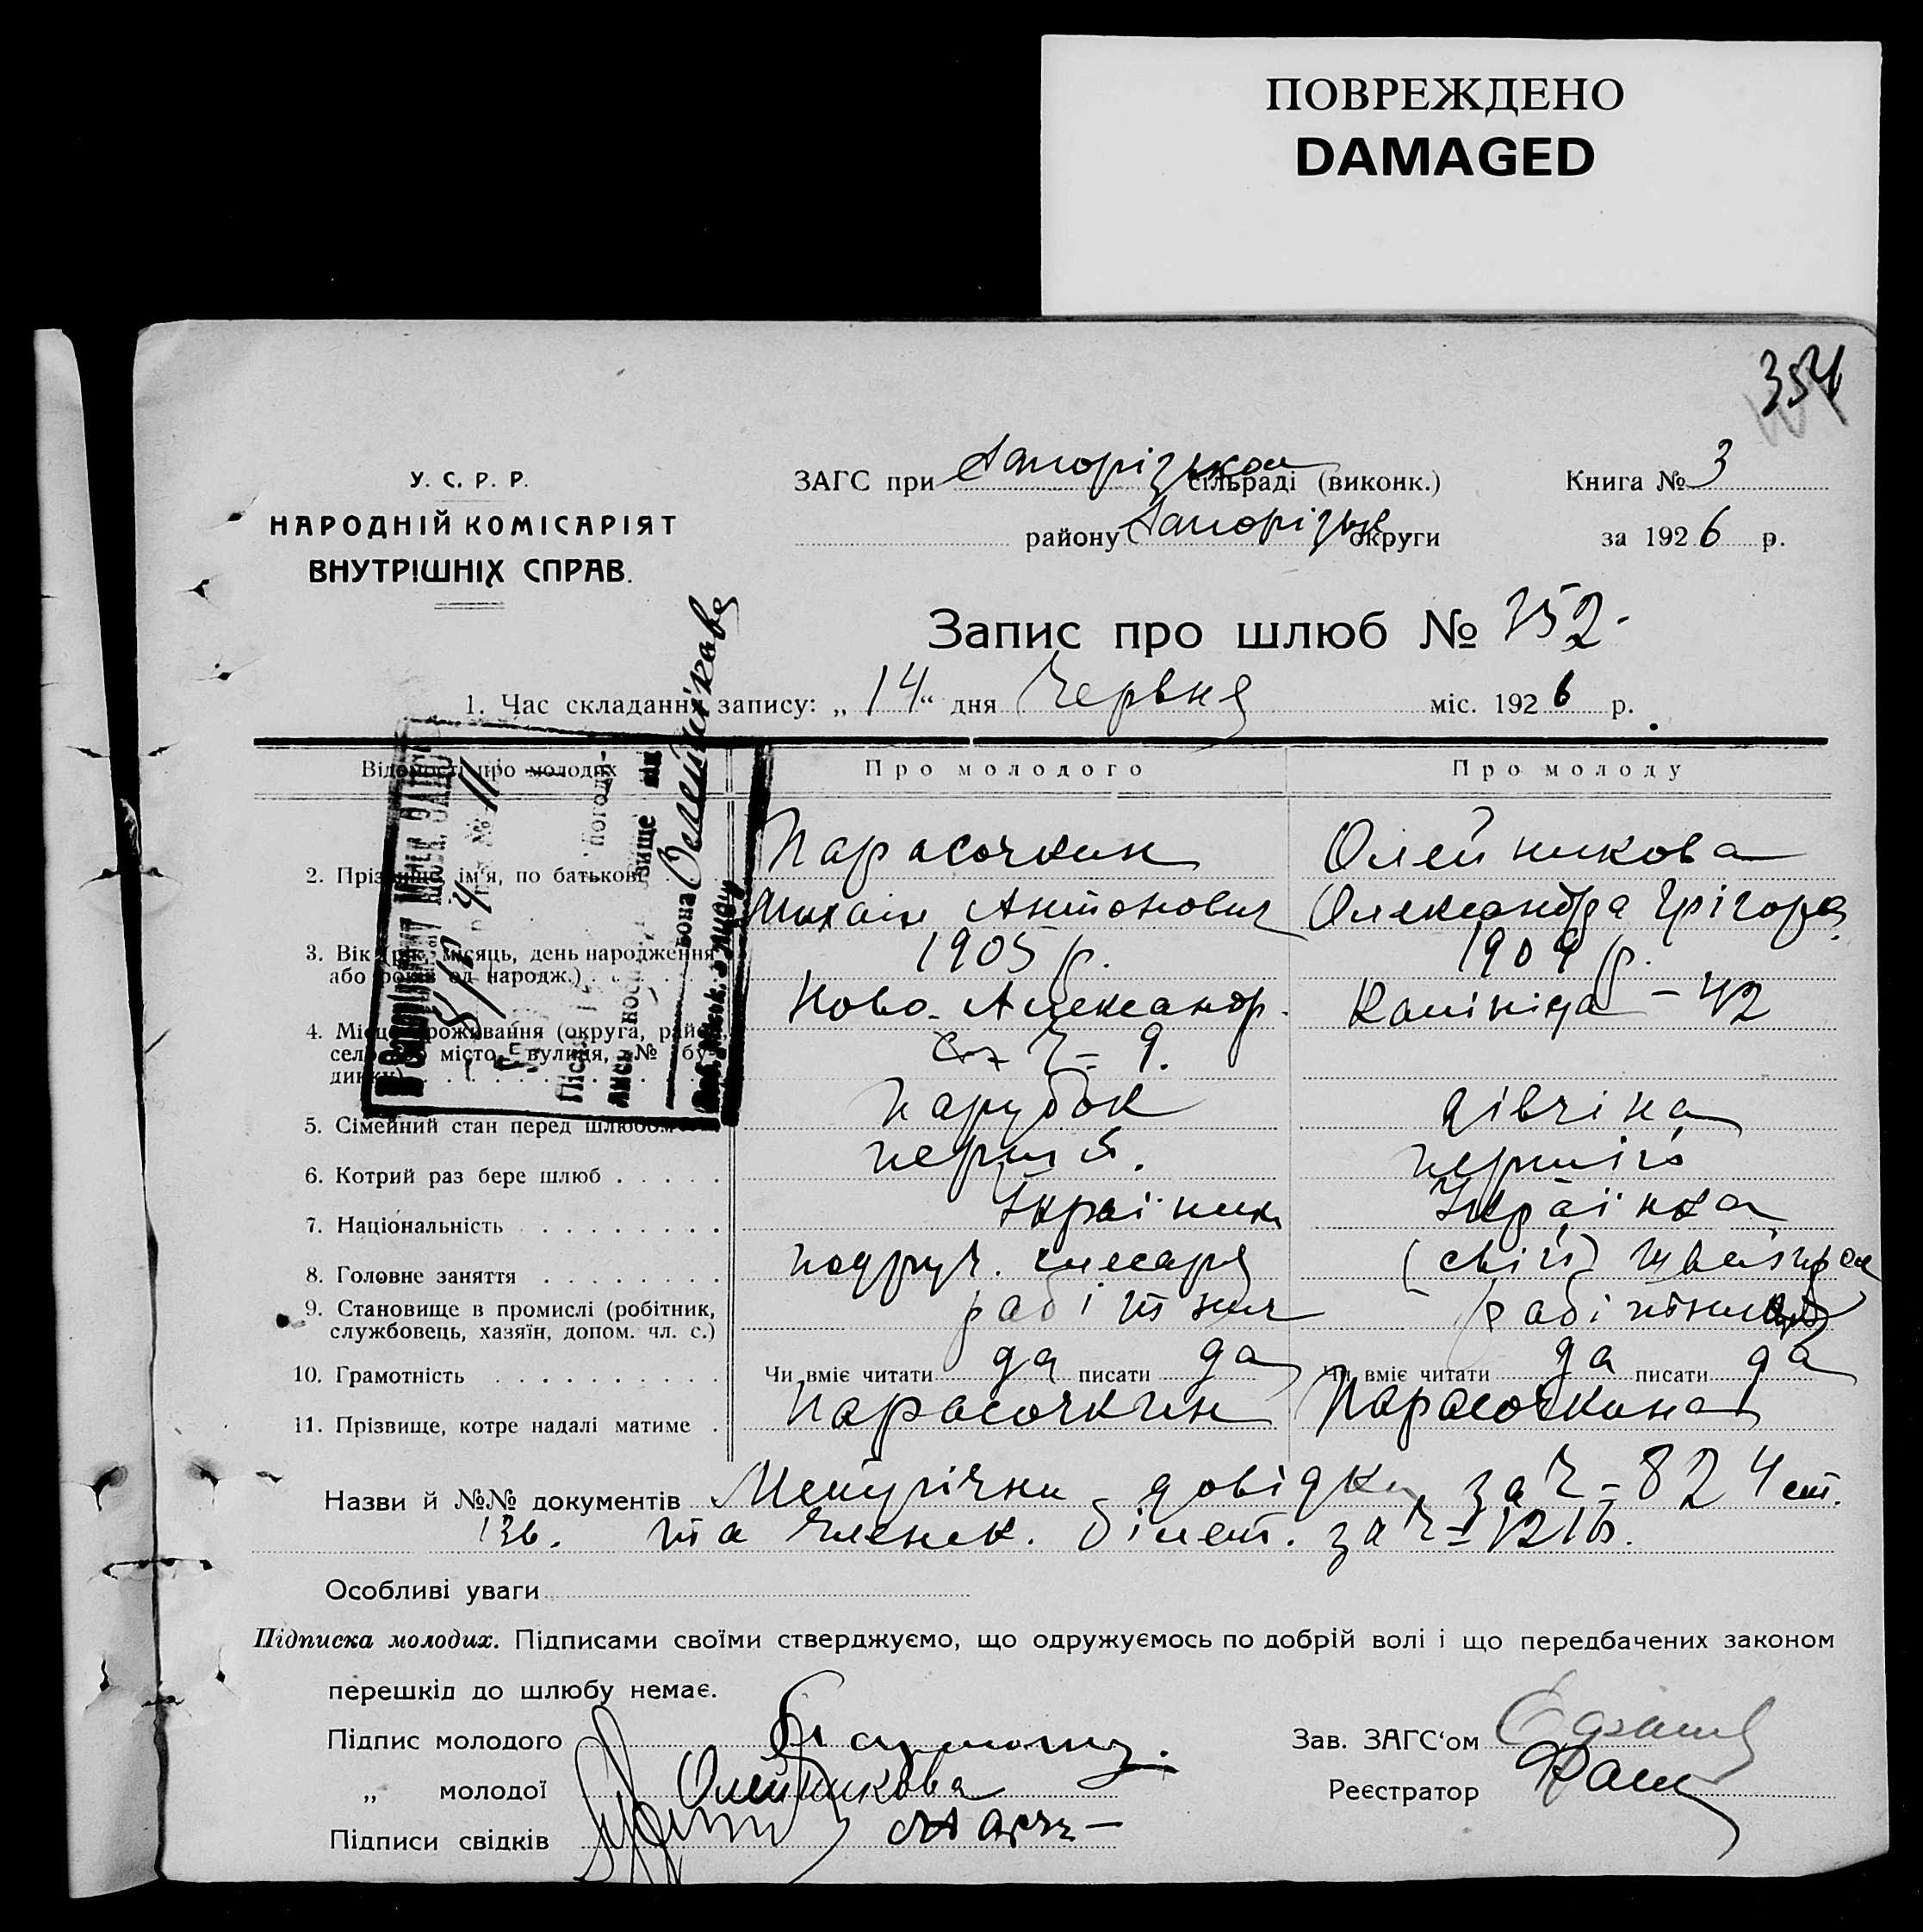 ПОВРЕЖДЕНО
DAMAGED
354
У. С. Р. Р.
НАРОДНІЙ КОМІСАРІЯТ
ВНУТРІШНІХ СПРАВ.
ЗАГС при Запорізьком сільраді (виконк.)
району Запорізьк округи
Книга № 3
за 1926 р.
Запис про шлюб № 752
1. Час складання запису: „14“ дня Червня міс. 1926 р.
Відомості про молодих
Про молодого
Про молоду
2. Прізвище, ім'я, по батькові
Парасочкин
Михаил Антонович
Олейникова
Олександра Грігор
3. Вік (рік, місяць, день народження
або років од народж.)
1905 р.
1909 р.
4. Місце проживання (округа, район,
село або місто, вулиця, № бу-
динку)
Ново-Александр.
9.
Калініна - 42
5. Сімейний стан перед шлюбом
парубок
дівчіна
6. Котрий раз бере шлюб
перший.
перший
7. Національність
Українка
8. Головне заняття
подруч. слесаря
(свій)
9. Становище в промислі (робітник,
службовець, хазяїн, допом. чл. с.)
рабітник
10. Грамотність
Чи вміє читати да писати да
Чи вміє читати да писати да
11. Прізвище, котре надалі матиме
Парасочкин
Парасочкина
Назви й №№ документів довідки за 824
та членск. білет. за
Особливі уваги
Підписка молодих. Підписами своїми стверджуємо, що одружуємось по добрій волі і що передбачених законом
перешкід до шлюбу немає.
Підпис молодого
„ молодої Олейникова
Підписи свідків
Зав. ЗАГС‘ом
Реєстратор